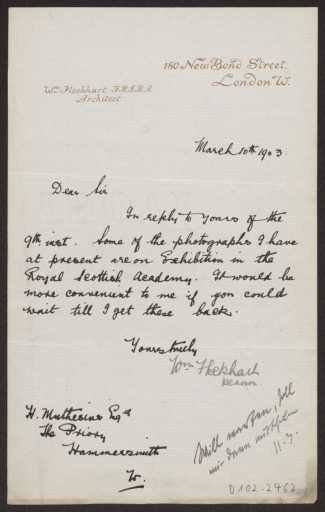 180 New Bond Street.
London W.
Wm Flockhart F.R.I.B.A.
Architect
March 10th 1903
Dear Sir
In reply to yours of the
9th inst. Some of the photographs I have
at present are on Exhibition in the
Royal Scottish Academy. It would be
more convenient to me if you could
wait till I get these back.
Yours truly
Wm Flockhart
H. Muthesius Esqre
The Priory
Hammersmith
W.
Will warten, soll
mir dann mitteilen
D 102-2462